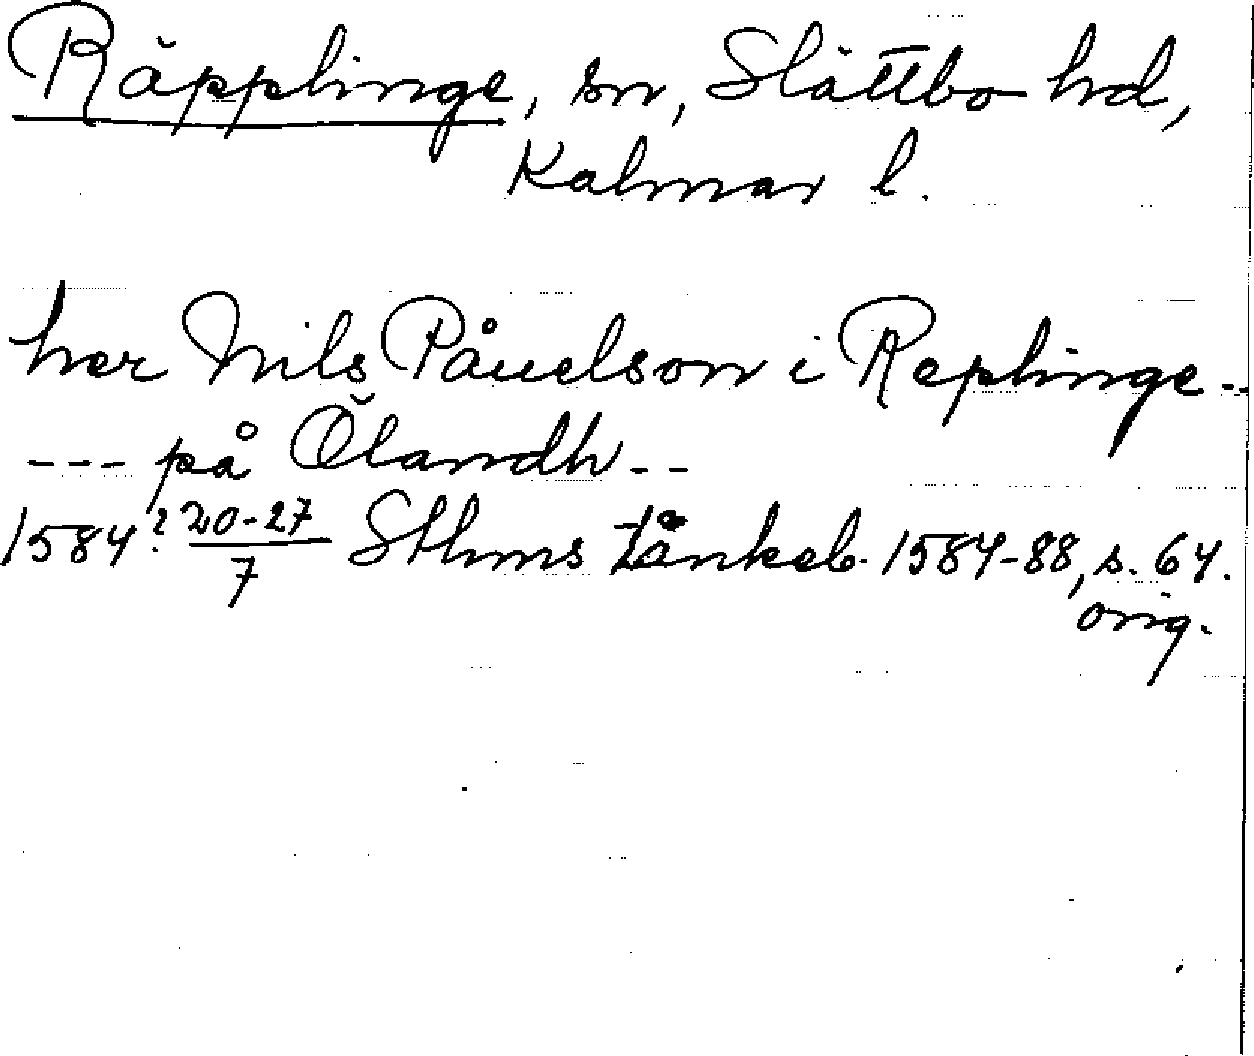 Räpplinge, sn, Slättbo hd,
Kalmar l.
her Nils Påuelson i Replinge --
--- på Ölandh --
1584? 20-27/7 Sthms tänkeb. 1584-88, s. 64.
orig.